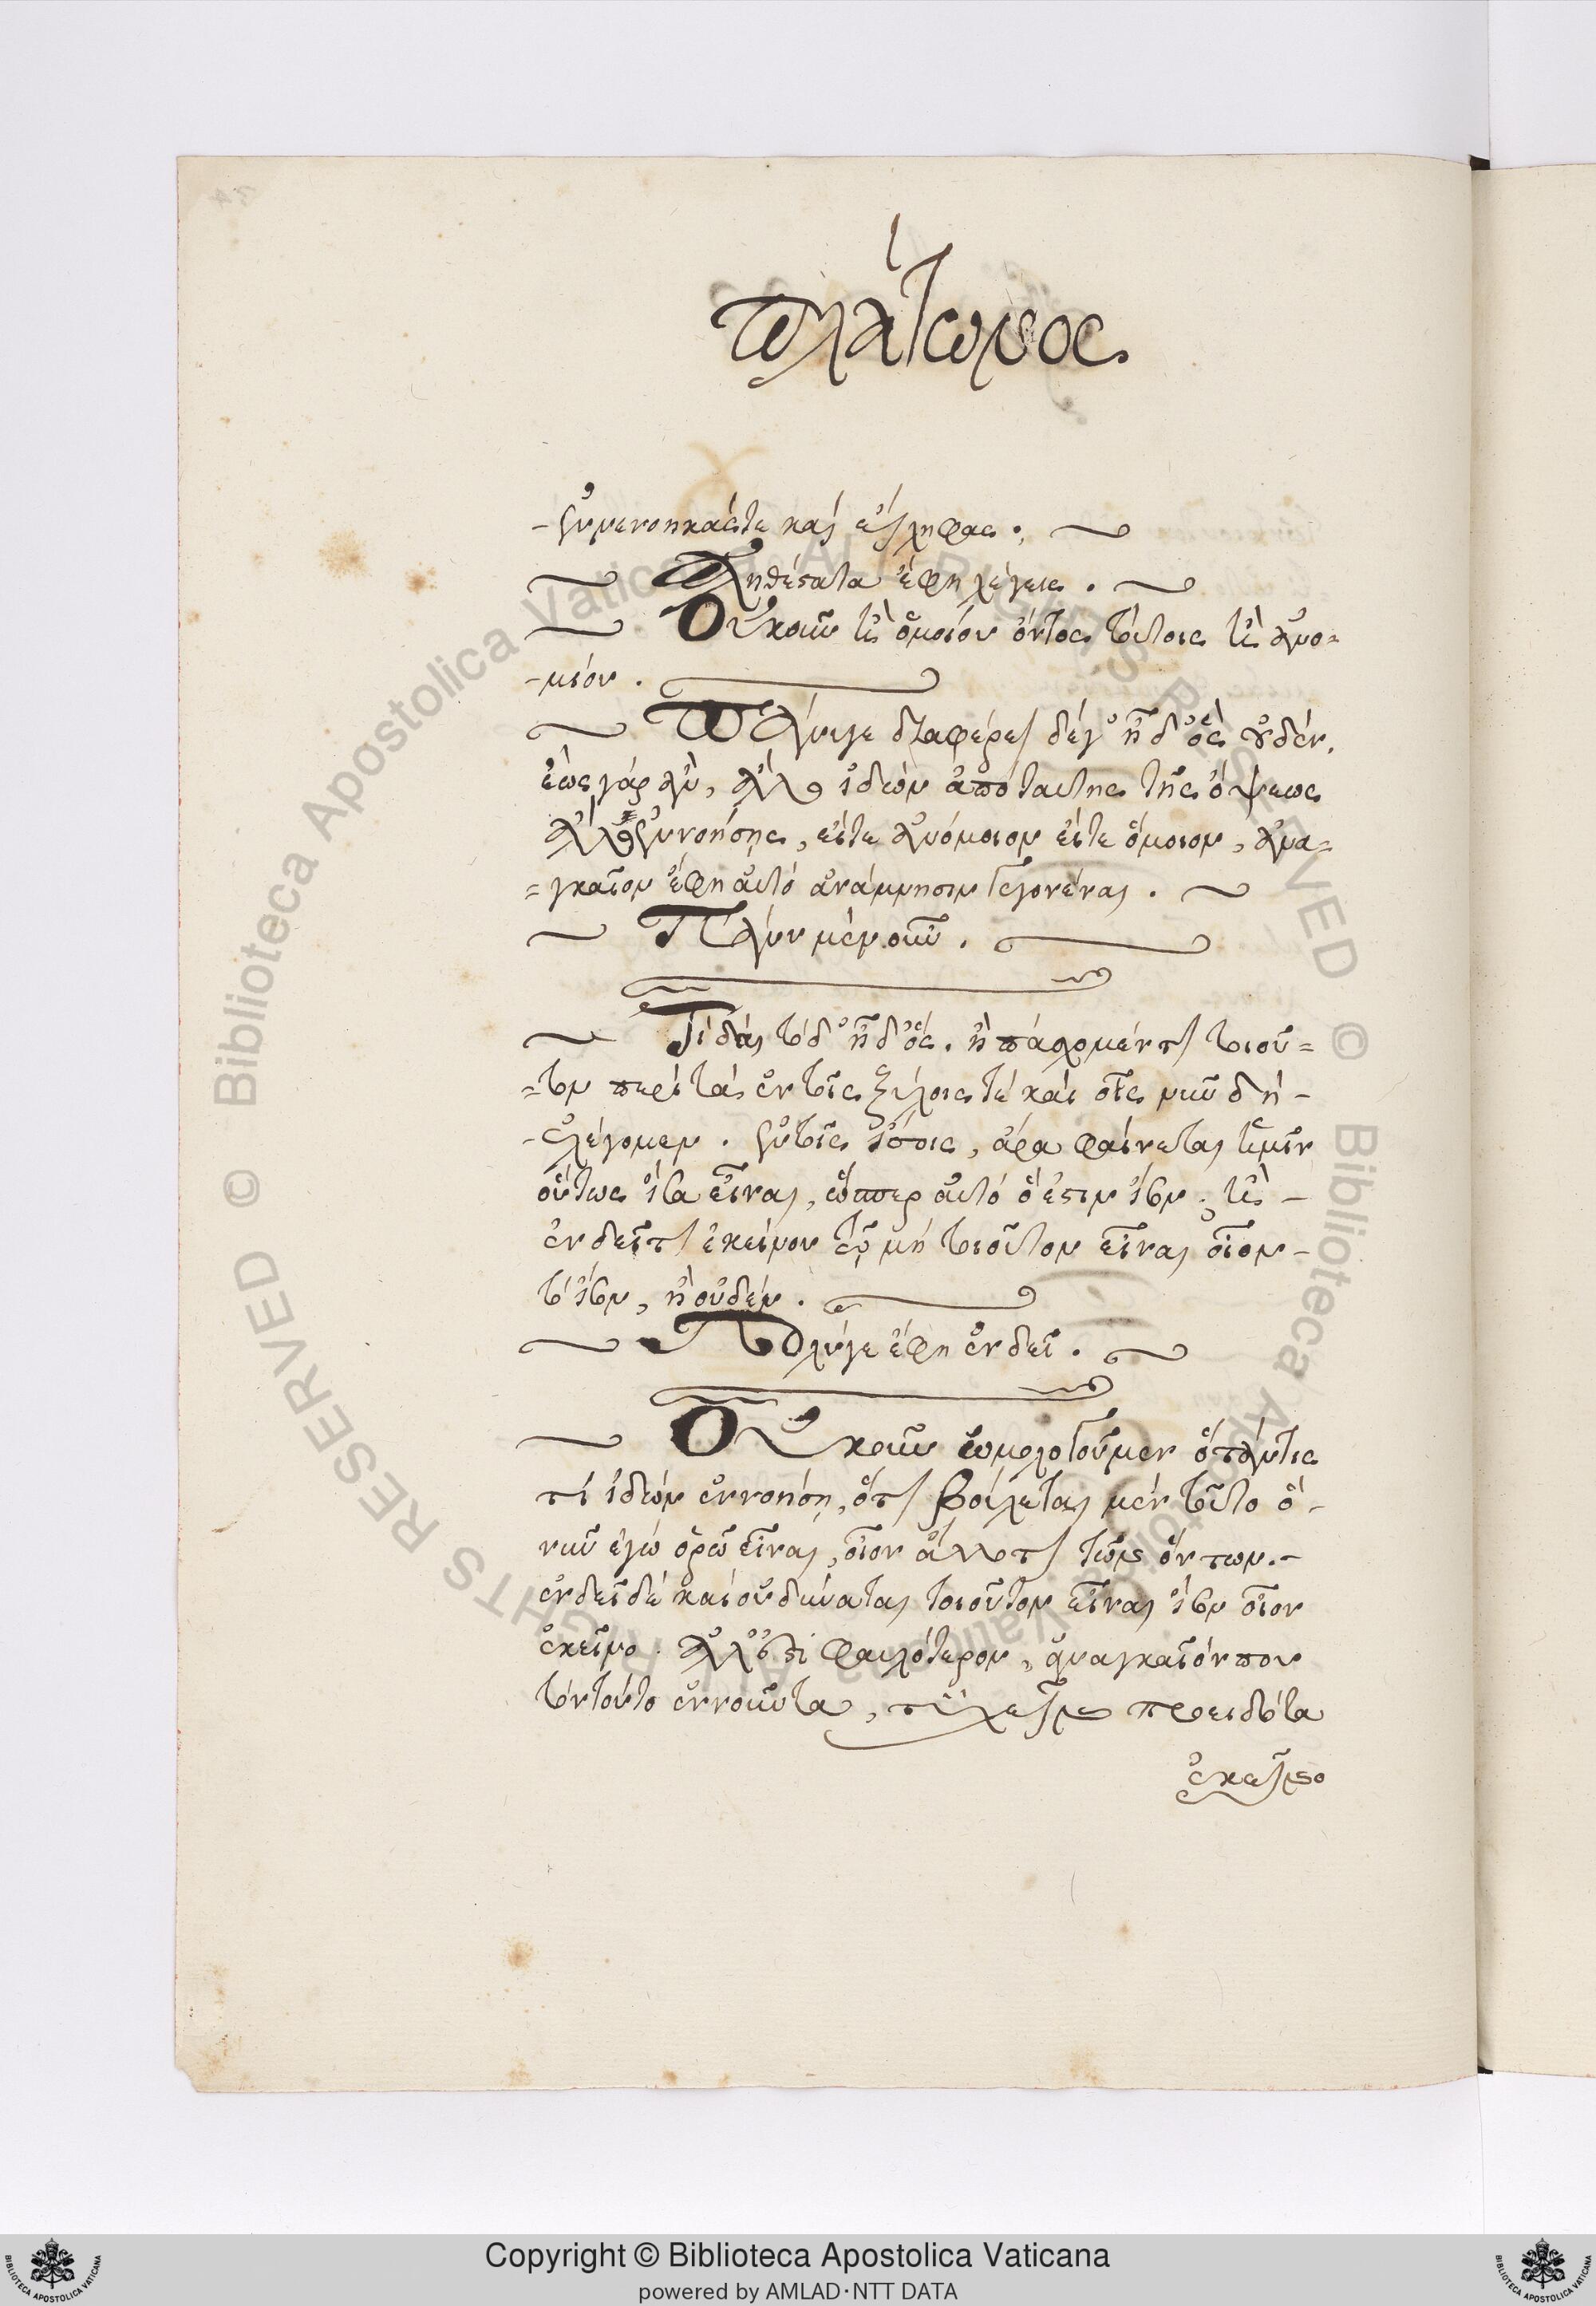 πλάτωνος
-ξυνενοηκάς τε καὶ εἴληφας·
Ἀληθέστατα ἔφη λέγεις.
Οὐκοῦν ἢ ὁμοίου ὄντος τούτοις ἢ ἀνο=
-μοίου.
Πάνυ γε διαφέρει δέ γ' ἦ δ' ὃς οὐδέν,
ἕως γὰρ ἂν, ἄλλο ἰδὼν ἀπὸ ταύτης τῆς ὄψεως
ἄλλο ξυννοήσῃς, εἴτε ἀνόμοιον εἴτε ὅμοιον, ἀνα=
=γκαῖον ἔφη αὐτὸ ἀνάμνησιν γεγονέναι.
Πάνυ μὲν οὖν.
Τί δαὶ τόδ' ἦ δ' ὅς. ἦ πάσχομέν τι τοιοῦ=
=τον περὶ τὰ ἐν τοῖς ξύλοις τὲ καὶ οἷς νῦν δή-
-ἐλέγομεν. ἐν τοῖς ἴσοις, ἆρα φαίνεται ἡμῖν
οὕτως ἴσα εἶναι, ὥσπερ αὐτὸ ὃ ἔστιν ἴσον; ἢ-
ἐνδεῖ τι ἐκείνου τῷ μὴ τοιοῦτον εἶναι οἷον-
τὸ ἴσον, ἢ οὐδέν.
Πολύγε ἔφη ἐνδεῖ.
Οὐκοῦν ὡμολογοῦμεν ὅταν τις
τὶ ἰδὼν ἐννοήσῃ, ὅτι βούλεται μὲν τοῦτο ὃ-
νῦν ἐγὼ ὁρῶ εἶναι, οἷον ἄλλο τι τῶν ὄντων.-
ἐνδεῖ δὲ καὶ οὐ δύναται τοιοῦτον εἶναι ἴσον οἷον
ἐκεῖνο. ἀλλ' ἔστι φαυλότερον, ἀναγκαῖόν που
τὸν τοῦτο ἐννοοῦντα, τυχεῖν προειδότα
ἐκεῖνο
Copyright © Biblioteca Apostolica Vaticana
powered by AMLAD·NTT DATA